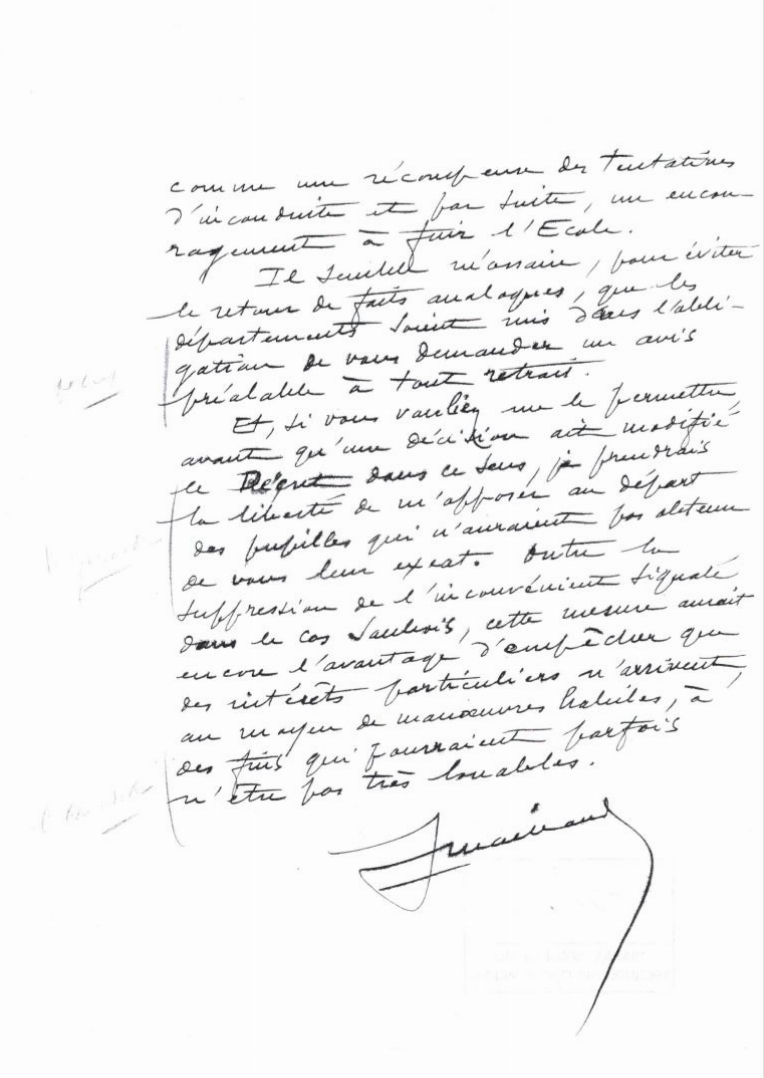 comme une récompense des tentatives
d'inconduite et par suite, un encou-
ragement à fuir l'Ecole.
Il semble nécessaire, pour éviter
le retour de faits analogues, que les
départements soient mis dans l'obli-
gation de vous demander un avis
préalable à tout retrait.
Et, si vous vouliez me le permettre,
avant qu'une décision ait modifié
le Décret dans ce sens, je prendrais
la liberté de m'opposer au départ
des pupilles qui n'auraient pas obtenu
de vous leur exeat. Outre la
suppression de l'inconvénient signalé
dans le cas, cette mesure aurait
encore l'avantage d'empêcher que
des intérêts particuliers n'arrivent,
au moyen de manœuvres habiles, à
des fins qui pourraient parfois
n'être pas très louables.